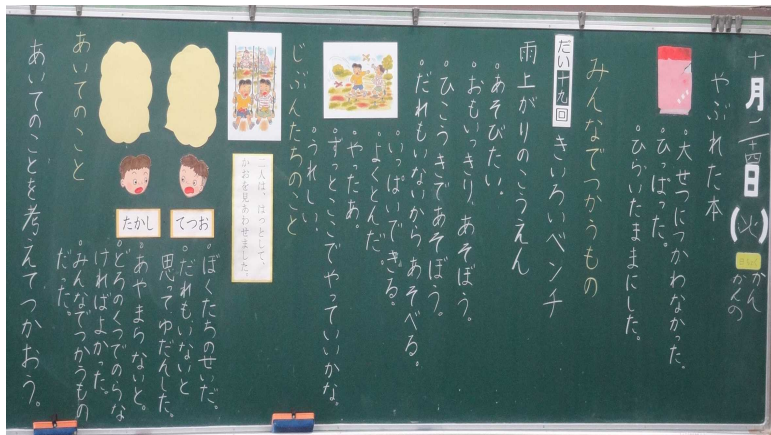 十月二十四日(火)
かん
かんの
やぶれた本
・大せつにつかわなかった。
・ひっぱった。
・ひらいたままにした。
みんなでつかうもの
だい十九回 きいろいベンチ
雨上がりのこうえん
・あそびたい。
・おもいっきり、あそぼう。
・ひこうきであそぼう。
・だれもいないから、あそべる。
・いっぱいできる。
・よくとんだ。
・やったあ。
・ずっとここでやっていいかな。
・うれしい。
じぶんたちのこと
二人は、はっとして、
かおを見あわせました。
てつお
たかし
・ぼくたちのせいだ。
・だれもいないと
思ってゆだんした。
・あやまらないと。
・どろのくつでのらな
ければよかった。
・みんなでつかうもの
だった。
あいてのこと
あいてのことを考えてつかおう。